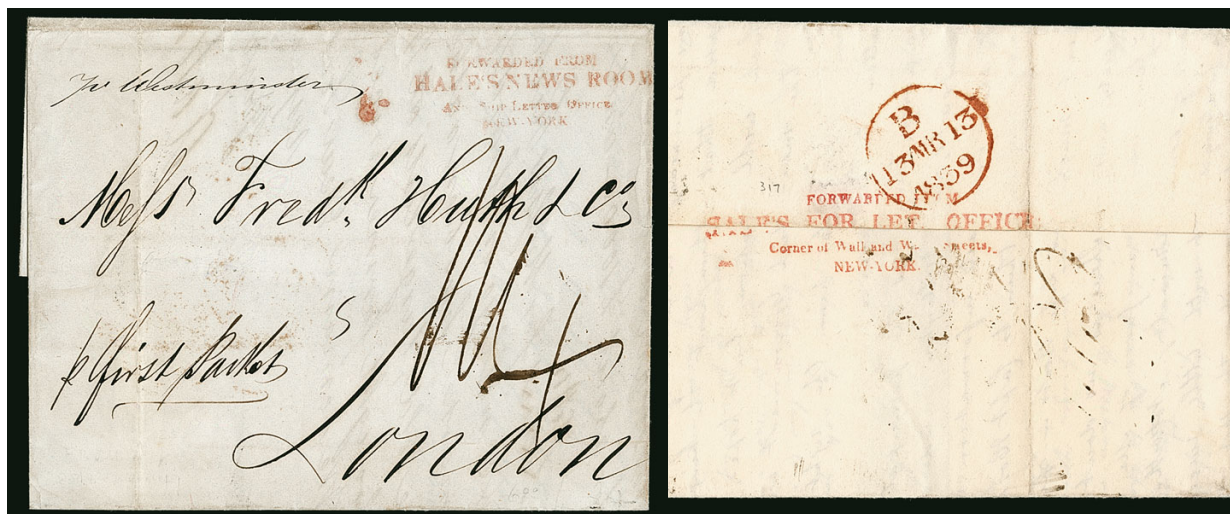 pr Westminster
FORWARDED FROM
HALE'S NEWS ROOM
AND SHIP LETTER OFFICE
NEW-YORK
Messrs Fredk Huth & Co
p first Packet
London
B
13 MR 13
1839
317
FORWARDED FROM
HALE'S FOR. LET. OFFICE
Corner of Wall and W streets,
NEW-YORK.